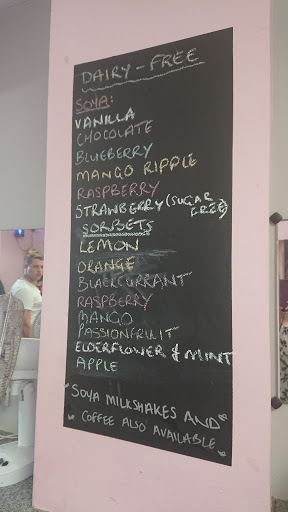 DAIRY-FREE
SOYA:
VANILLA
CHOCOLATE
BLUEBERRY
MANGO RIPPLE
RASPBERRY
STRAWBERRY (SUGAR
FREE)
SORBETS
LEMON
ORANGE
BLACKCURRANT
RASPBERRY
MANGO
PASSIONFRUIT
ELDERFLOWER & MINT
APPLE
"SOYA MILKSHAKES AND
COFFEE ALSO AVAILABLE"